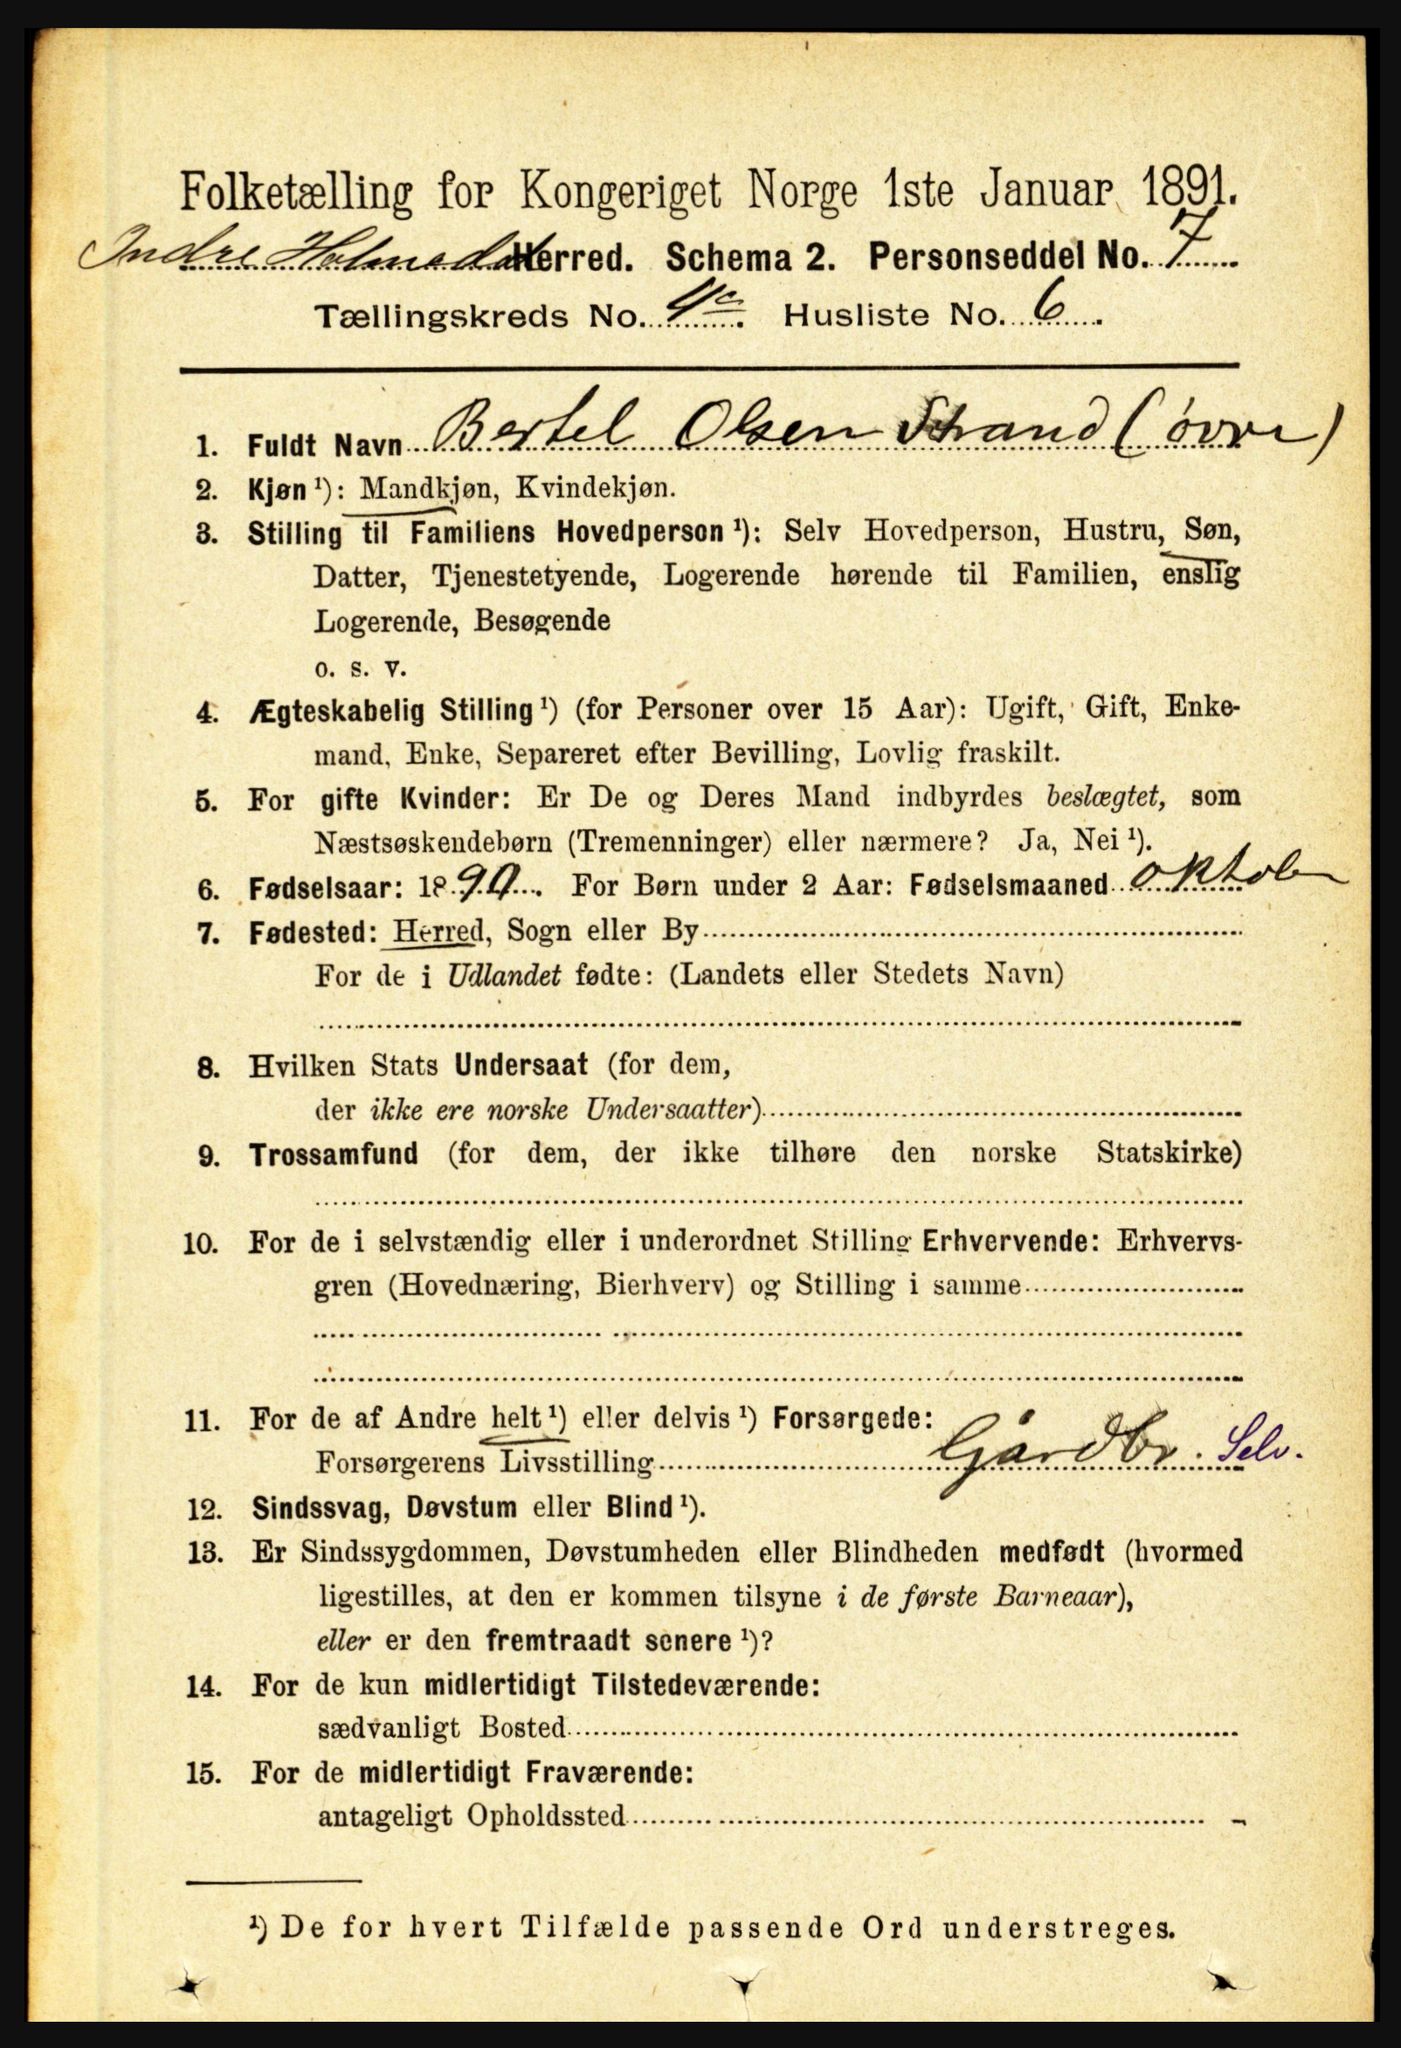 Folketælling for Kongeriget Norge 1ste Januar 1891.
Indre Holmedal Herred. Schema 2. Personseddel No. 7
Tællingskreds No. 4c. Husliste No. 6.
1. Fuldt Navn Bertel Olsen Strand (øvre)
2. Kjøn ¹): Mandkjøn, Kvindekjøn.
3. Stilling til Familiens Hovedperson ¹): Selv Hovedperson, Hustru, Søn,
Datter, Tjenestetyende, Logerende hørende til Familien, enslig
Logerende, Besøgende
o. s. v.
4. Ægteskabelig Stilling ¹) (for Personer over 15 Aar): Ugift, Gift, Enke-
mand, Enke, Separeret efter Bevilling, Lovlig fraskilt.
5. For gifte Kvinder: Er De og Deres Mand indbyrdes beslægtet, som
Næstsøskendebørn (Tremenninger) eller nærmere? Ja, Nei ¹).
6. Fødselsaar: 1890. For Børn under 2 Aar: Fødselsmaaned oktober
7. Fødested: Herred, Sogn eller By
For de i Udlandet fødte: (Landets eller Stedets Navn)
8. Hvilken Stats Undersaat (for dem,
der ikke ere norske Undersaatter)
9. Trossamfund (for dem, der ikke tilhøre den norske Statskirke)
10. For de i selvstændig eller i underordnet Stilling Erhvervende: Erhvervs-
gren (Hovednæring, Bierhverv) og Stilling i samme
11. For de af Andre helt ¹) eller delvis ¹) Forsørgede:
Forsørgerens Livsstilling Gårdbr. Selv.
12. Sindssvag, Døvstum eller Blind ¹).
13. Er Sindssygdommen, Døvstumheden eller Blindheden medfødt (hvormed
ligestilles, at den er kommen tilsyne i de første Barneaar),
eller er den fremtraadt senere ¹)?
14. For de kun midlertidigt Tilstedeværende:
sædvanligt Bosted
15. For de midlertidigt Fraværende:
antageligt Opholdssted
¹) De for hvert Tilfælde passende Ord understreges.